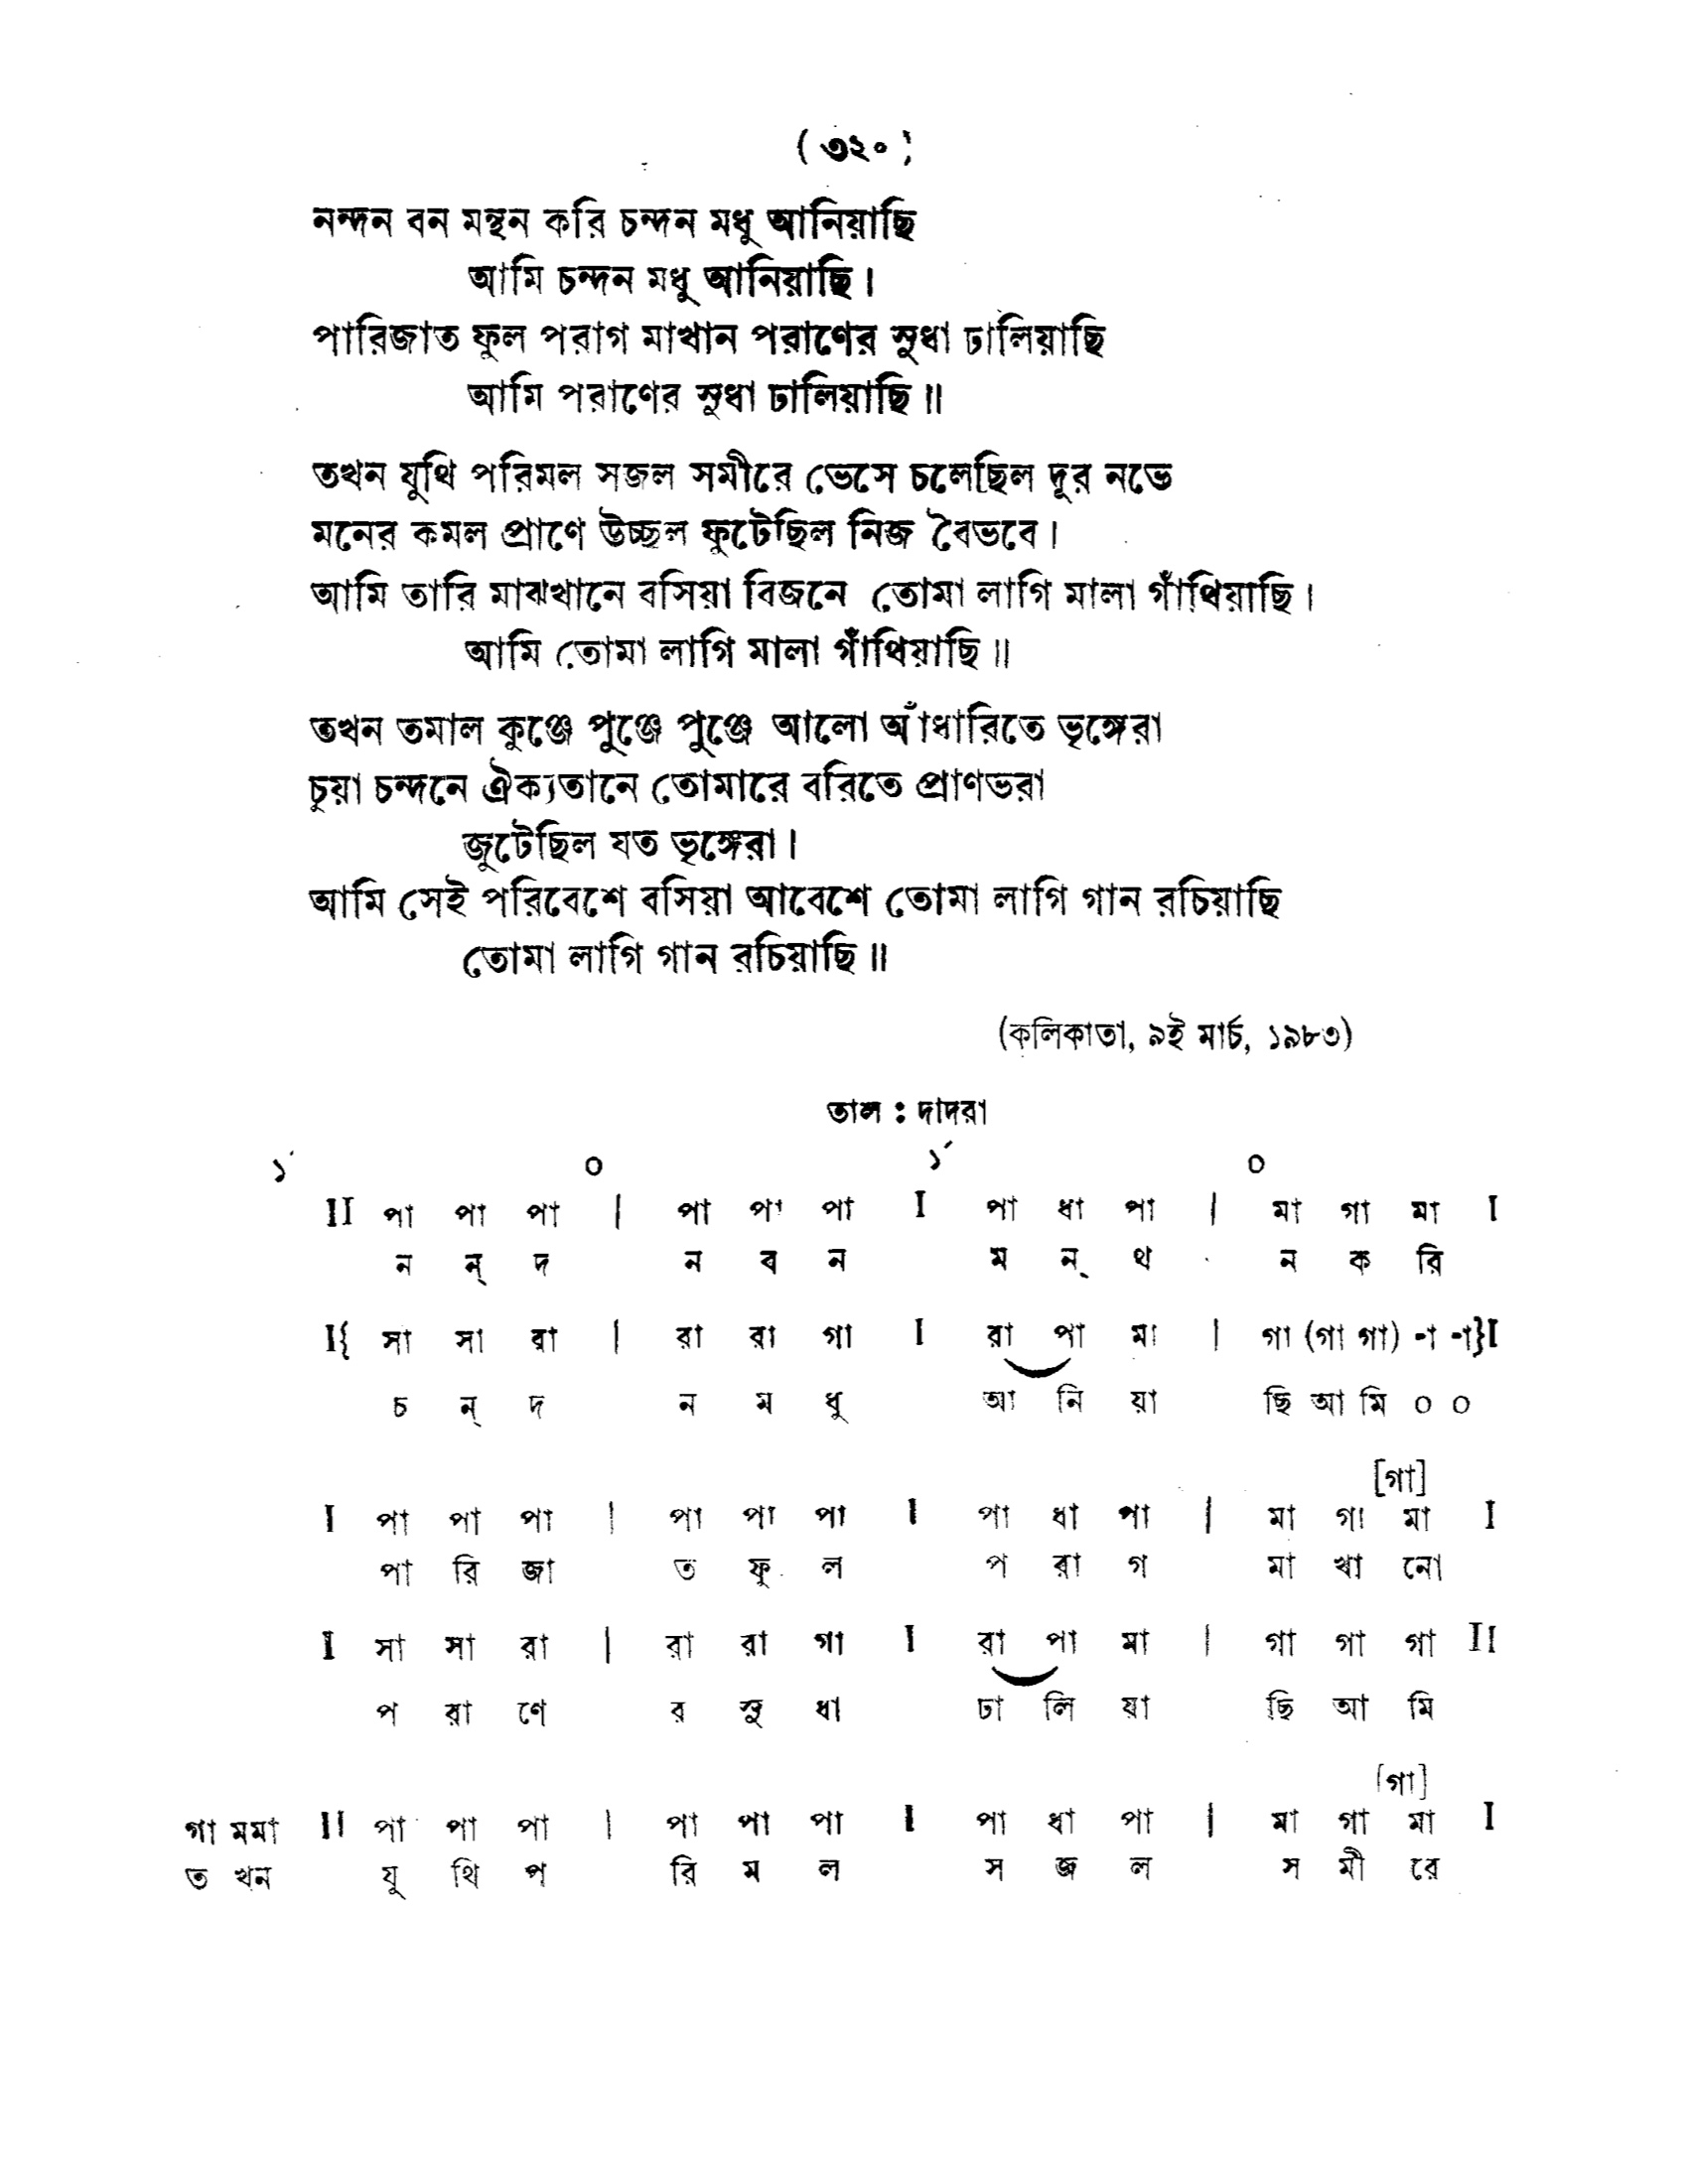 ( ৩২০ )
নন্দন বন মন্থন করি চন্দন মধু আনিয়াছি
আমি চন্দন মধু আনিয়াছি।
পারিজাত ফুল পরাগ মাখান পরাণের সুধা ঢালিয়াছি
আমি পরাণের সুধা ঢালিয়াছি॥
তখন যুথি পরিমল সজল সমীরে ভেসে চলেছিল দূর নভে
মনের কমল প্রাণে উচ্ছল ফুটেছিল নিজ বৈভবে।
আমি তারি মাঝখানে বসিয়া বিজনে তোমা লাগি মালা গাঁথিয়াছি।
আমি তোমা লাগি মালা গাঁথিয়াছি॥
তখন তমাল কুঞ্জে পুঞ্জে পুঞ্জে আলো আঁধারিতে ভৃঙ্গেরা
চুয়া চন্দনে ঐক্যতানে তোমারে বরিতে প্রাণভরা
জুটেছিল যত ভৃঙ্গেরা।
আমি সেই পরিবেশে বসিয়া আবেশে তোমা লাগি গান রচিয়াছি
তোমা লাগি গান রচিয়াছি॥
(কলিকাতা, ৯ই মার্চ, ১৯৮৩)
তাল : দাদরা
১´ ০ ১´ ০
II পা পা পা | পা পা পা I পা ধা পা | মা গা মা I
ন ন্ দ ন ব ন ম ন্ থ ন ক রি
I{ সা সা রা | রা রা গা I রা পা মা | গা (গা গা) -া -া}I
চ ন্ দ ন ম ধু আ নি য়া ছি আ মি ০ ০
[গা]
I পা পা পা | পা পা পা I পা ধা পা | মা গা মা I
পা রি জা ত ফু ল প রা গ মা খা নো
I সা সা রা | রা রা গা I রা পা মা | গা গা গা II
প রা ণে র সু ধা ঢা লি য়া ছি আ মি
[গা]
গা মমা II পা পা পা | পা পা পা I পা ধা পা | মা গা মা I
ত খন যু থি প রি ম ল স জ ল স মী রে